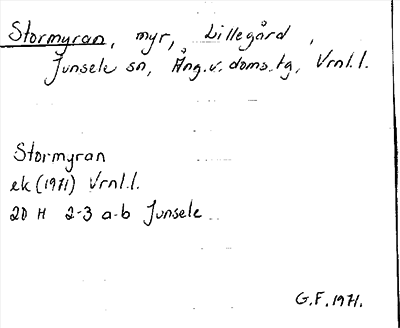 Stormyran, myr, Lillegård,
Junsele sn, Ång.v. doms.tg, Vrnl.l.
Stormyran
ek (1971) Vrnl.l.
20 H 2-3 a-b Junsele
G.F. 1971.